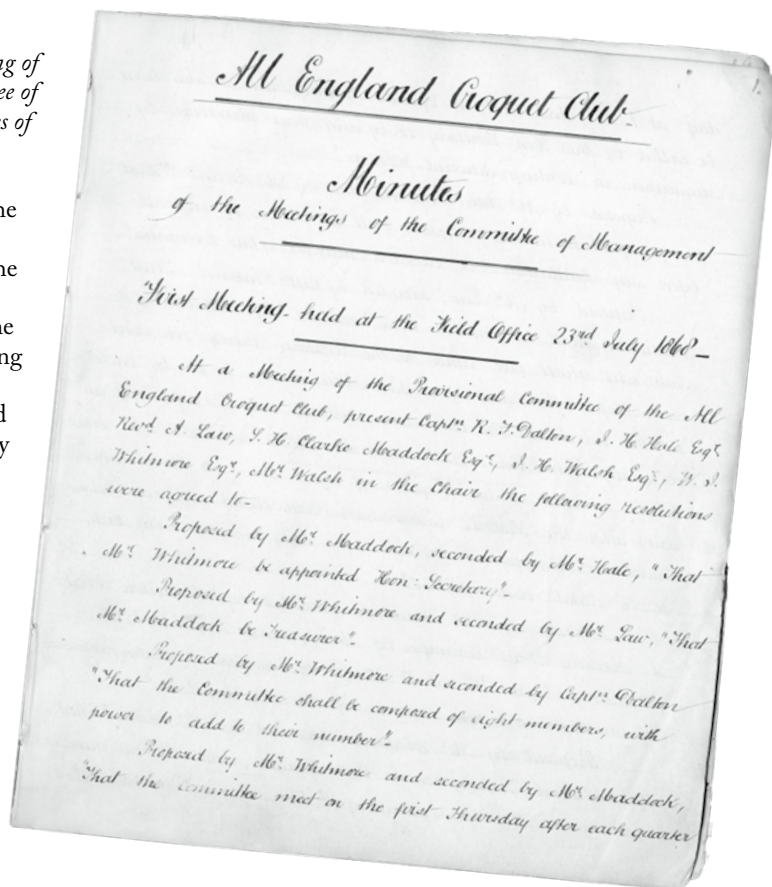 ng of
ee of
s of
ne
ne
ne
ng
d
y
1.
All England Croquet Club_
Minutes
of the Meetings of the Committee of Management
First Meeting_ held at the Field Office 23rd July 1868_
At a Meeting of the Provisional Committee of the All
England Croquet Club, present Captn. R. F. Dalton, J. H. Hale Esqr.
Revd. A. Law, S. H. Clarke Maddock Esqr., J. H. Walsh Esqr., W. J.
Whitmore Esqr., Mr. Walsh in the Chair the following resolutions
were agreed to_
Proposed by Mr. Maddock, seconded by Mr. Hale, "That
Mr. Whitmore be appointed Hon: Secretary"_
Proposed by Mr. Whitmore and seconded by Mr. Law, "That
Mr. Maddock be Treasurer"_
Proposed by Mr. Whitmore and seconded by Captn. Dalton
"That the Committee shall be composed of eight members, with
power to add to their number"_
Proposed by Mr. Whitmore and seconded by Mr. Maddock,
"That the Committee meet on the first Thursday after each quarter